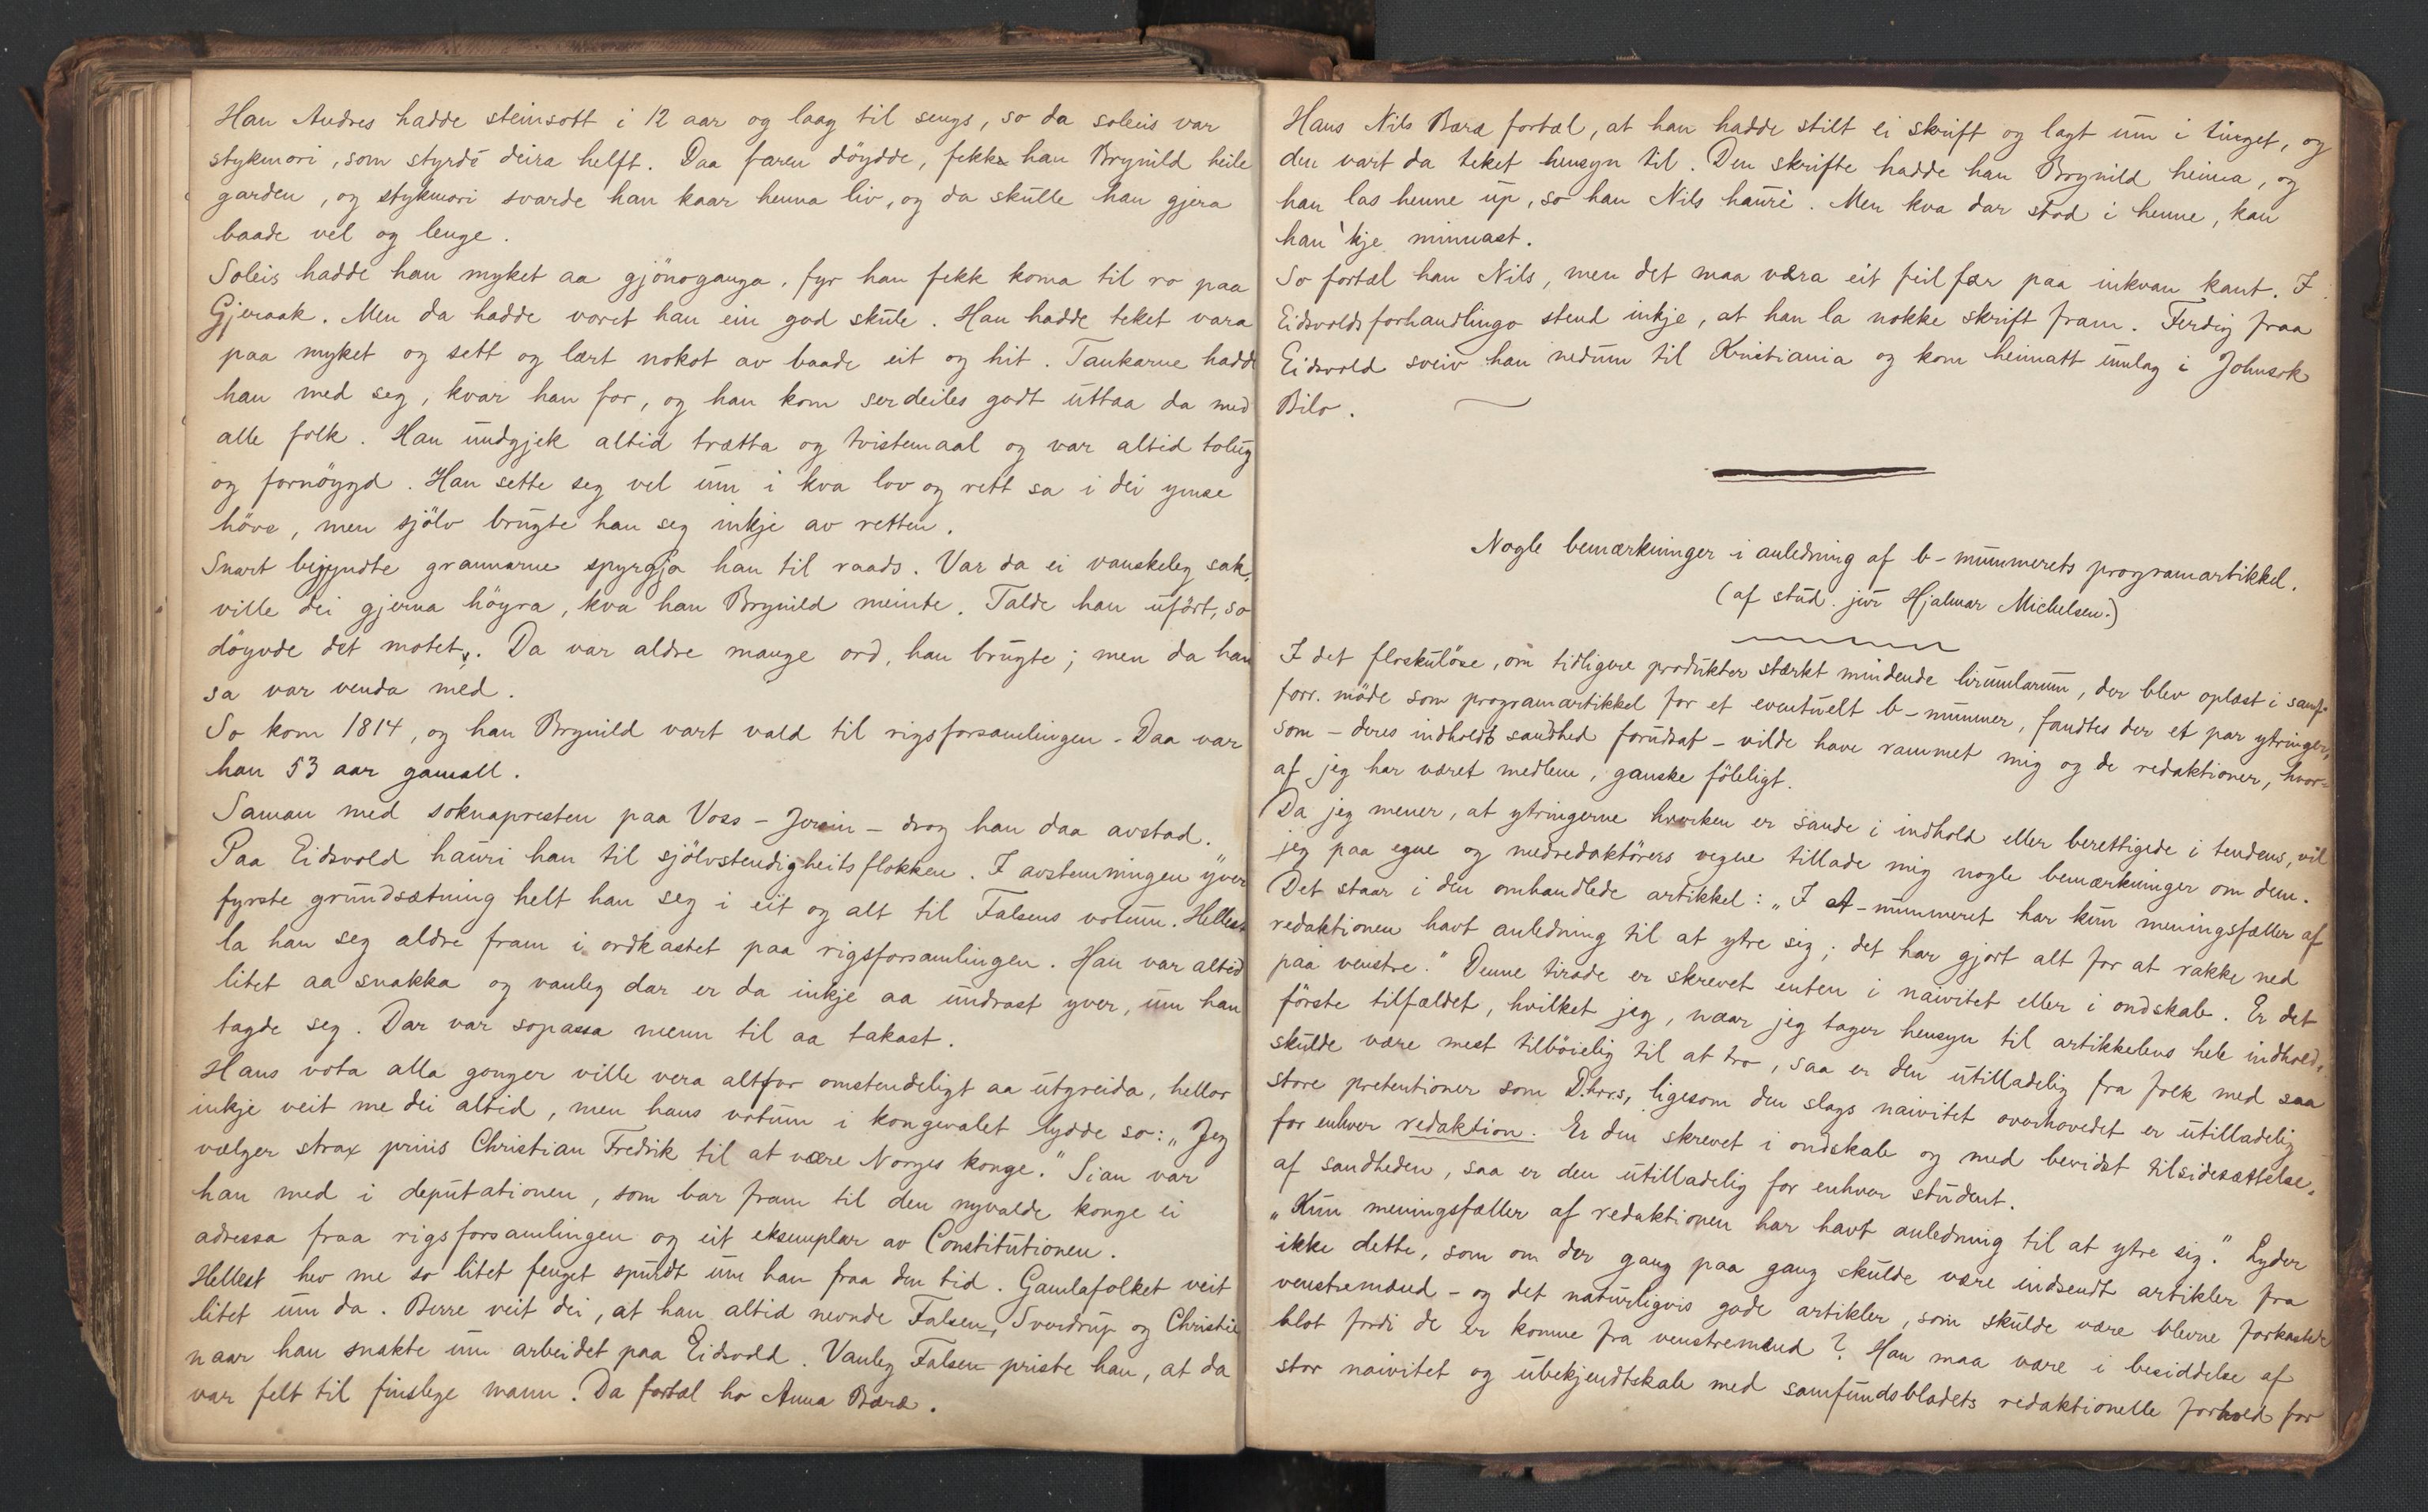 Han Andres hadde steinsott i 12 aar og laag til sengs, so da soleis var
stykmori, som styrde deira helft. Daa faren döydde, fekk han Brynild heile
garden, og stykmori svarde han kaar henna liv, og da skulle han gjera
baade vel og lenge.
Soleis hadde han myket aa gjönoganga, fyr han fekk koma til ro paa
Gjeraak. Men da hadde voret han ein god skule. Han hadde teket vara
paa myket og sett og lært nokot av baade eit og hit. Tankarne hadde
han med seg, kvar han for, og han kom serdeiles godt uttaa da med
alle folk. Han undgjek altid trætta og tvistemaal og var altid tolug
og fornöygd. Han sette seg vel um i kva lov og rett sa i dei ymse
höve, men sjölv brugte han seg inkje av retten.
Snart bigyndte grannarne spyrgja han til raads. Var da ei vanskeleg sak,
ville dei gjerna höyra, kva han Brynild meinte. Talde han ufört, so
döyvde det motet. Da var aldre mange ord, han brugte; men da han
sa var venda med.
So kom 1814, og han Brynild vart vald til rigsforsamlingen. Daa var
han 53 aar gamall.
Saman med soknapresten paa Voss – Jersin – drog han daa avstad.
Paa Eidsvold hauri han til sjölvstendigheitsflokken. I avstemningen yver
fyrste grundsætning helt han seg i eit og alt til Falsens votum. Hellest
la han seg aldre fram i ordkastet paa rigsforsamlingen. Han var altid
litet aa snakka og vanleg dar er da inkje aa undrast yver, um han
tagde seg. Dar var sopassa menn til aa takast.
Hans vota alla gonger ville vera altfor omstendeligt aa utgreida, hellor
inkje veit me dei altid, men hans votum i kongevalet lydde so: „Jeg
vælger strax prins Christian Fredrik til at være Norges konge." Sian var
han med i deputationen, som bar fram til den nyvalde konge ei
adressa fraa rigsforsamlingen og eit eksemplar av Constitutionen.
Hellest hev me so litet fenget spurdt um han fraa den tid. Gamlafolket veit
litet um da. Berre veit dei, at han altid nevnde Falsen, Sverdrup og Christie
naar han snakte um arbeidet paa Eidsvold. Vanleg Falsen priste han, at da
var felt til finslege mann. Da fortæl ho Anna Bæra.
Hans Nils Bæra fortæl, at han hadde stilt ei skrift og lagt um i tinget, og
den vart da teket hensyn til. Den skrifte hadde han Brynild heima, og
han las henne up, so han Nils hauri. Men kva dar stod i henne, kan
han 'kje minnast.
So fortæl han Nils, men det maa væra eit feilfær paa inkvan kant. I
Eidsvoldsforhandlingo stend inkje, at han la nokke skrift fram. Ferdig fraa
Eidsvold sveiv han nedum til Kristiania og kom heimatt umlag i Johnsok
Bilo.
Nogle bemærkninger i anledning af b-nummerets programartikkel.
(af stud. jur Hjalmar Michelsen.)
I det floskulöse, om tidligere produkter stærkt mindende lirumlarum, der blev oplæst i samf.
forr. möde som programartikkel for et eventuelt b-nummer, fandtes der et par ytringer,
som – deres indholds sandhed forudsat – vilde have rammet mig og de redaktioner, hvor-
af jeg har været medlem, ganske föleligt.
Da jeg mener, at ytringerne hverken er sande i indhold eller berettigede i tendens, vil
jeg paa egne og medredaktörers vegne tillade mig nogle bemærkninger om dem.
Det staar i den omhandlede artikkel: „I A-nummeret har kun meningsfæller af
redaktionen havt anledning til at ytre sig; det har gjort alt for at rakke ned
paa venstre." Denne tirade er skrevet enten i naivitet eller i ondskab. Er det
förste tilfældet, hvilket jeg, naar jeg tager hensyn til artikkelens hele indhold,
skulde være mest tilböielig til at tro, saa er den utilladelig fra folk med saa
store pretentioner som D'hrrs, ligesom den slags naivitet overhovedet er utilladelig
for enhver redaktion. Er den skrevet i ondskab og med bevidst tilsidesættelse
af sandheden, saa er den utilladelig for enhver student.
„Kun meningsfæller af redaktionen har havt anledning til at ytre sig." Lyder
ikke dette, som om der gang paa gang skulde være indsendt artikler fra
venstremænd – og det naturligvis gode artikler, som skulde være blevne forkastede
blot fordi de er komne fra venstremænd? Man maa være i besiddelse af
stor naivitet og ubekjendtskab med samfundsbladets redaktionelle forhold for